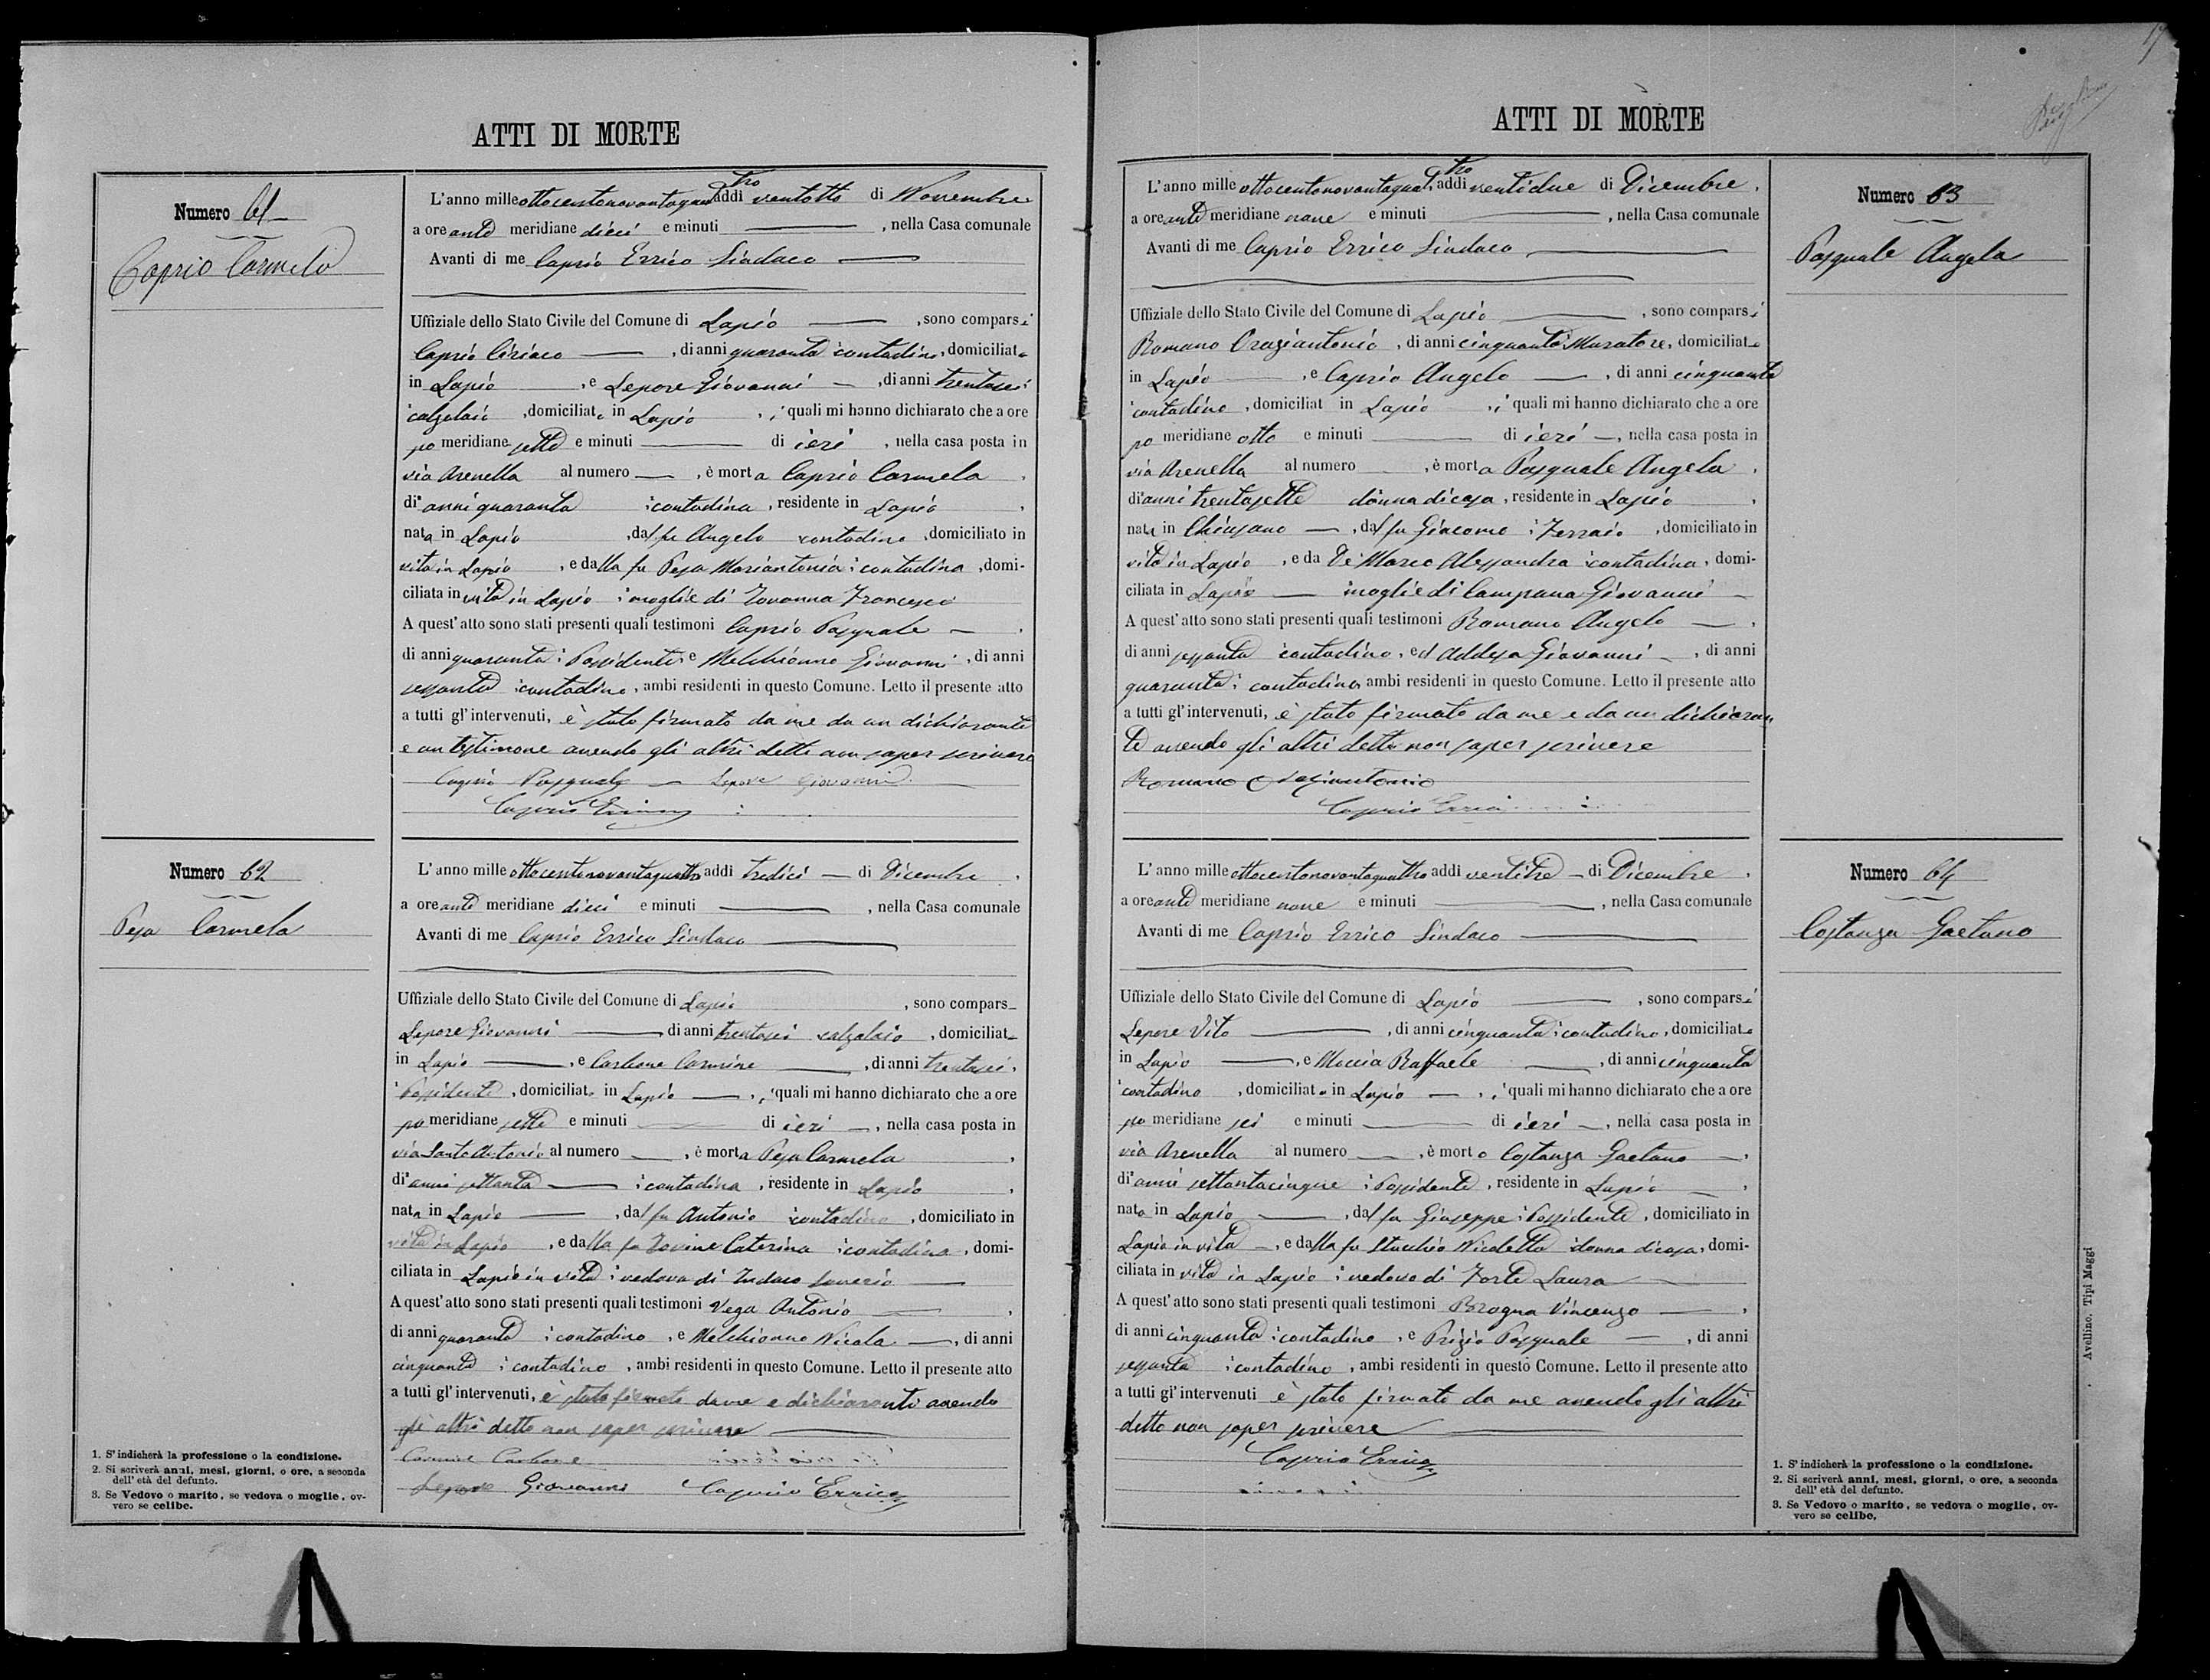 ATTI DI MORTE
Numero 61
Caprio Carmela
L'anno milleottocentonovantaquattro addi ventotto di Novembre
a ore ante meridiane dieci e minuti , nella Casa comunale
Avanti di me Caprio Errico Sindaco
Uffiziale dello Stato Civile del Comune di Lapio , sono comparsi
Caprio Ciriaco , di anni quaranta contadino, domiciliato
in Lapio , e Lepore Giovanni , di anni trentasei
calzolaio , domiciliato in Lapio , i quali mi hanno dichiarato che a ore
po meridiane sette e minuti di ieri , nella casa posta in
via Arenella al numero , è morta Caprio Carmela ,
di anni quaranta contadina , residente in Lapio ,
nata in Lapio , dal fu Angelo contadino , domiciliato in
vita in Lapio , e dalla fu Pesa Mariantonia contadina , domi-
ciliata in vita in Lapio moglie di Iovanna Francesco
A quest'atto sono stati presenti quali testimoni Caprio Pasquale ,
di anni quaranta Possidente e Melchionno Giovanni , di anni
sessanta contadino , ambi residenti in questo Comune. Letto il presente atto
a tutti gl'intervenuti, è stato firmato da me da un dichiarante
e un testimone avendo gli altri detto non saper scrivere
Caprio Pasquale Lepore Giovanni
Caprio Errico
Numero 62
Pesa Carmela
L'anno milleottocentonovantaquattro addi tredici di Dicembre ,
a ore ante meridiane dieci e minuti , nella Casa comunale
Avanti di me Caprio Errico Sindaco
Uffiziale dello Stato Civile del Comune di Lapio , sono compars
Lepore Giovanni , di anni trentasei calzolaio , domiciliato
in Lapio , e Carbone Carmine , di anni trentasei ,
Possidente , domiciliato in Lapio , i quali mi hanno dichiarato che a ore
po meridiane sette e minuti di ieri , nella casa posta in
via Santo Antonio al numero , è morta Pesa Carmela ,
di anni settanta contadina , residente in Lapio ,
nata in Lapio , dal fu Antonio contadino , domiciliato in
vita in Lapio , e dalla fu Iovine Caterina contadina , domi-
ciliata in Lapio in vita vedova di Saverio
A quest'atto sono stati presenti quali testimoni Vega Antonio ,
di anni quaranta contadino , e Melchionno Nicola , di anni
cinquanta contadino , ambi residenti in questo Comune. Letto il presente atto
a tutti gl'intervenuti, è stato firmato da me e dichiaranti avendo
gli altri detto non saper scrivere
Carmine Carbone
Lepore Giovanni Caprio Errico
1. S'indicherà la professione o la condizione.
2. Si scriverà anni, mesi, giorni, o ore, a seconda
dell'età del defunto.
3. Se Vedovo o marito, se vedova o moglie, ov-
vero se celibe.
17
ATTI DI MORTE
Numero 63
Pasquale Angela
L'anno milleottocentonovantaquattro addi ventidue di Dicembre ,
a ore ante meridiane nove e minuti , nella Casa comunale
Avanti di me Caprio Errico Sindaco
Uffiziale dello Stato Civile del Comune di Lapio , sono comparsi
Romano Oraziantonio , di anni cinquanta Muratore, domiciliato
in Lapio , e Caprio Angelo , di anni cinquanta
contadino , domiciliat in Lapio , i quali mi hanno dichiarato che a ore
po meridiane otto e minuti di ieri , nella casa posta in
via Arenella al numero , è morta Pasquale Angela ,
di anni trentasette donna di casa , residente in Lapio ,
nata in Chiusano , dal fu Giacomo Ferraio , domiciliato in
vita in Lapio , e da De Marco Alessandra contadina , domi-
ciliata in Lapio moglie di Campana Giovanni
A quest'atto sono stati presenti quali testimoni Romano Angelo ,
di anni sessanta contadino , ed Addesa Giovanni , di anni
quaranta contadino, ambi residenti in questo Comune. Letto il presente atto
a tutti gl'intervenuti, è stato firmato da me e da un dichiaran
te avendo gli altri detto non saper scrivere
Romano Oraziantonio
Caprio Errico
Numero 64
Costanza Gaetano
L'anno milleottocentonovantaquattro addi ventitre di Dicembre ,
a ore ante meridiane nove e minuti , nella Casa comunale
Avanti di me Caprio Errico Sindaco
Uffiziale dello Stato Civile del Comune di Lapio , sono comparsi
Lepore Vito , di anni cinquanta contadino, domiciliato
in Lapio , e Moccia Raffaele , di anni cinquanta
contadino , domiciliato in Lapio , i quali mi hanno dichiarato che a ore
po meridiane sei e minuti di ieri , nella casa posta in
via Arenella al numero , è morto Costanza Gaetano ,
di anni settantacinque Possidente , residente in Lapio ,
nato in Lapio , dal fu Giuseppe Possidente , domiciliato in
Lapio in vita , e dalla fu Stucchio Nicoletta donna di casa, domi-
ciliata in vita in Lapio vedovo di Forte Laura
A quest'atto sono stati presenti quali testimoni Brogna Vincenzo ,
di anni cinquanta contadino , e Prizio Pasquale , di anni
sessanta contadino , ambi residenti in questo Comune. Letto il presente atto
a tutti gl'intervenuti è stato firmato da me avendo gli altri
detto non saper scrivere
Caprio Errico
1. S'indicherà la professione o la condizione.
2. Si scriverà anni, mesi, giorni, o ore, a seconda
dell'età del defunto.
3. Se Vedovo o marito, se vedova o moglie, ov-
vero se celibe.
Avellino. Tipi Maggi